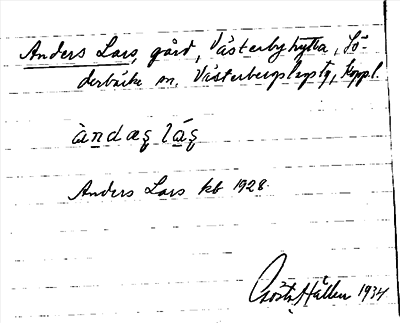 Anders Lars, gård, Västerbyhytta, Sö-
derbärke sn. Västerbergslags tg, Koppl.
àndæʂ láʂ
Anders Lars kb 1928.
Gösta Hallen 1934